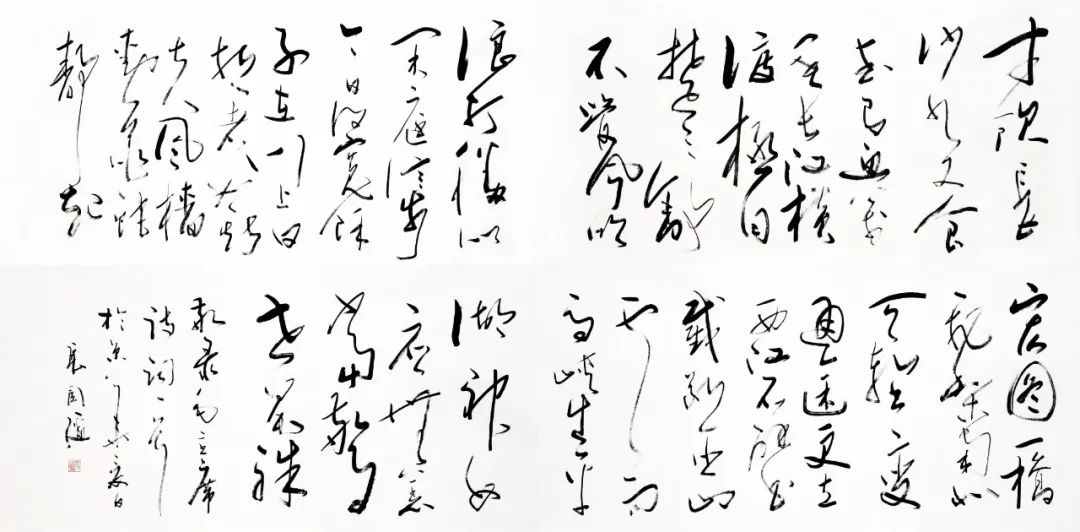 才饮长
沙水又食
武昌鱼万
里长江横
渡极目
楚天舒
不管风吹
浪打胜似
闲庭信步
今日得宽馀
子在川上曰
逝者如斯
夫风樯
动龟蛇
静起
宏图一桥
飞架南北
天堑变
通途更立
西江石壁
截断巫山
云雨
高峡出平
湖神女
应无恙
当惊
世界殊
敬录毛主席
诗词一首
于京